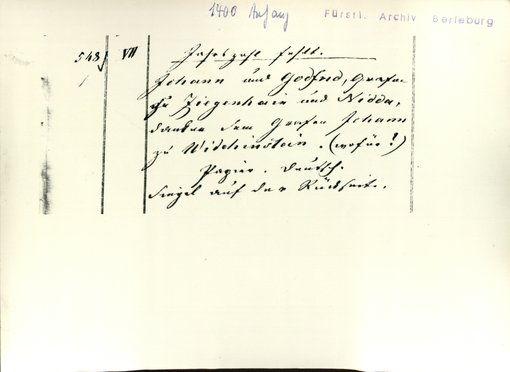 1400 Anfang
Fürstl. Archiv Berleburg
548 VII Jahrszahl fehlt.
Johann und Godfrid, Grafen
zu Ziegenhain und Nidda,
danken dem Grafen Johann
zu Witchenstein. (wofür?)
Papier. Deutsch.
Siegel auf der Rückseite.